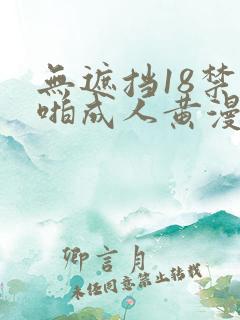 無遮挡18禁
啪成人黄漫
卿言月
未经同意禁止转载